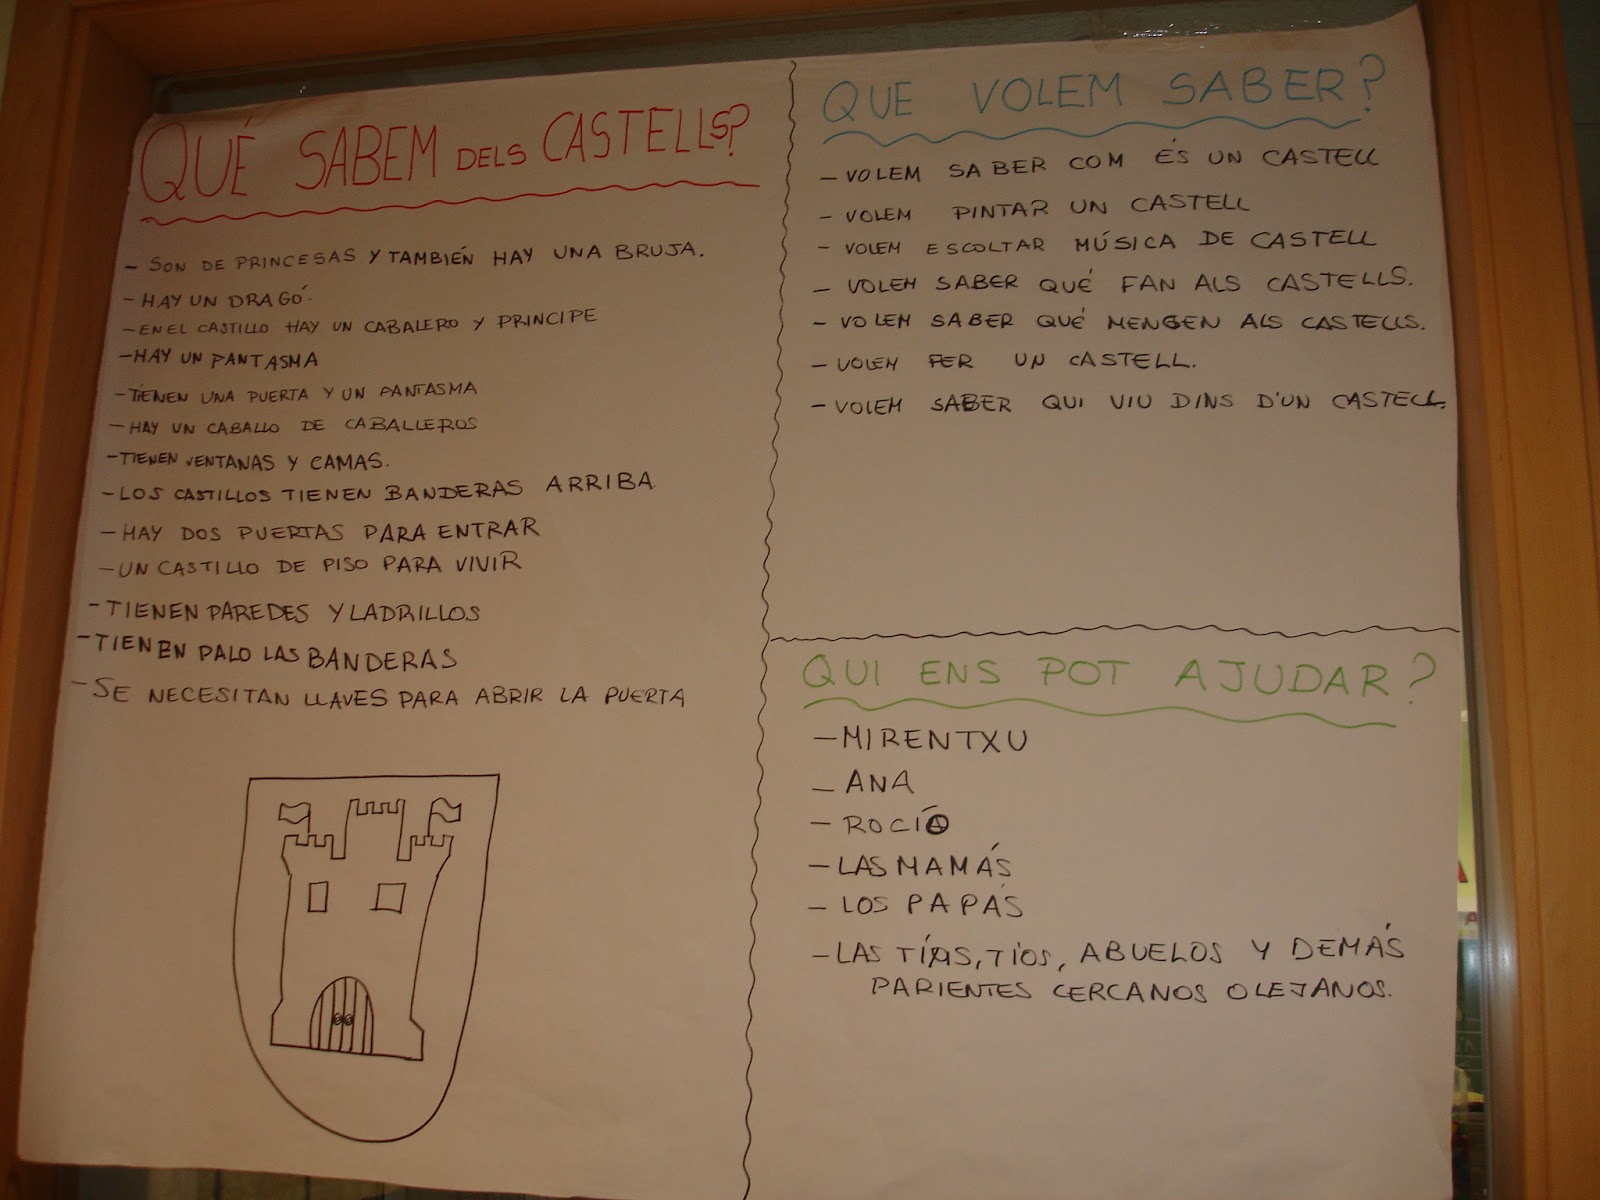 QUÉ SABEM DELS CASTELLS?
- SON DE PRINCESAS Y TAMBIÉN HAY UNA BRUJA.
- HAY UN DRAGÓ.
- EN EL CASTILLO HAY UN CABALERO Y PRINCIPE
- HAY UN PANTASMA
- TIENEN UNA PUERTA Y UN PANTASMA
- HAY UN CABALLO DE CABALLEROS
- TIENEN VENTANAS Y CAMAS.
- LOS CASTILLOS TIENEN BANDERAS ARRIBA.
- HAY DOS PUERTAS PARA ENTRAR
- UN CASTILLO DE PISO PARA VIVIR
- TIENEN PAREDES Y LADRILLOS
- TIENEN PALO LAS BANDERAS
- SE NECESITAN LLAVES PARA ABRIR LA PUERTA
QUE VOLEM SABER?
- VOLEM SABER COM ÉS UN CASTELL
- VOLEM PINTAR UN CASTELL
- VOLEM ESCOLTAR MÚSICA DE CASTELL
- VOLEM SABER QUÉ FAN ALS CASTELLS.
- VOLEM SABER QUÉ MENGEN ALS CASTELLS.
- VOLEM FER UN CASTELL.
- VOLEM SABER QUI VIU DINS D'UN CASTELL.
QUI ENS POT AJUDAR?
- MIRENTXU
- ANA
- ROCÍO
- LAS MAMÁS
- LOS PAPÁS
- LAS TÍAS, TÍOS, ABUELOS Y DEMÁS
PARIENTES CERCANOS O LEJANOS.